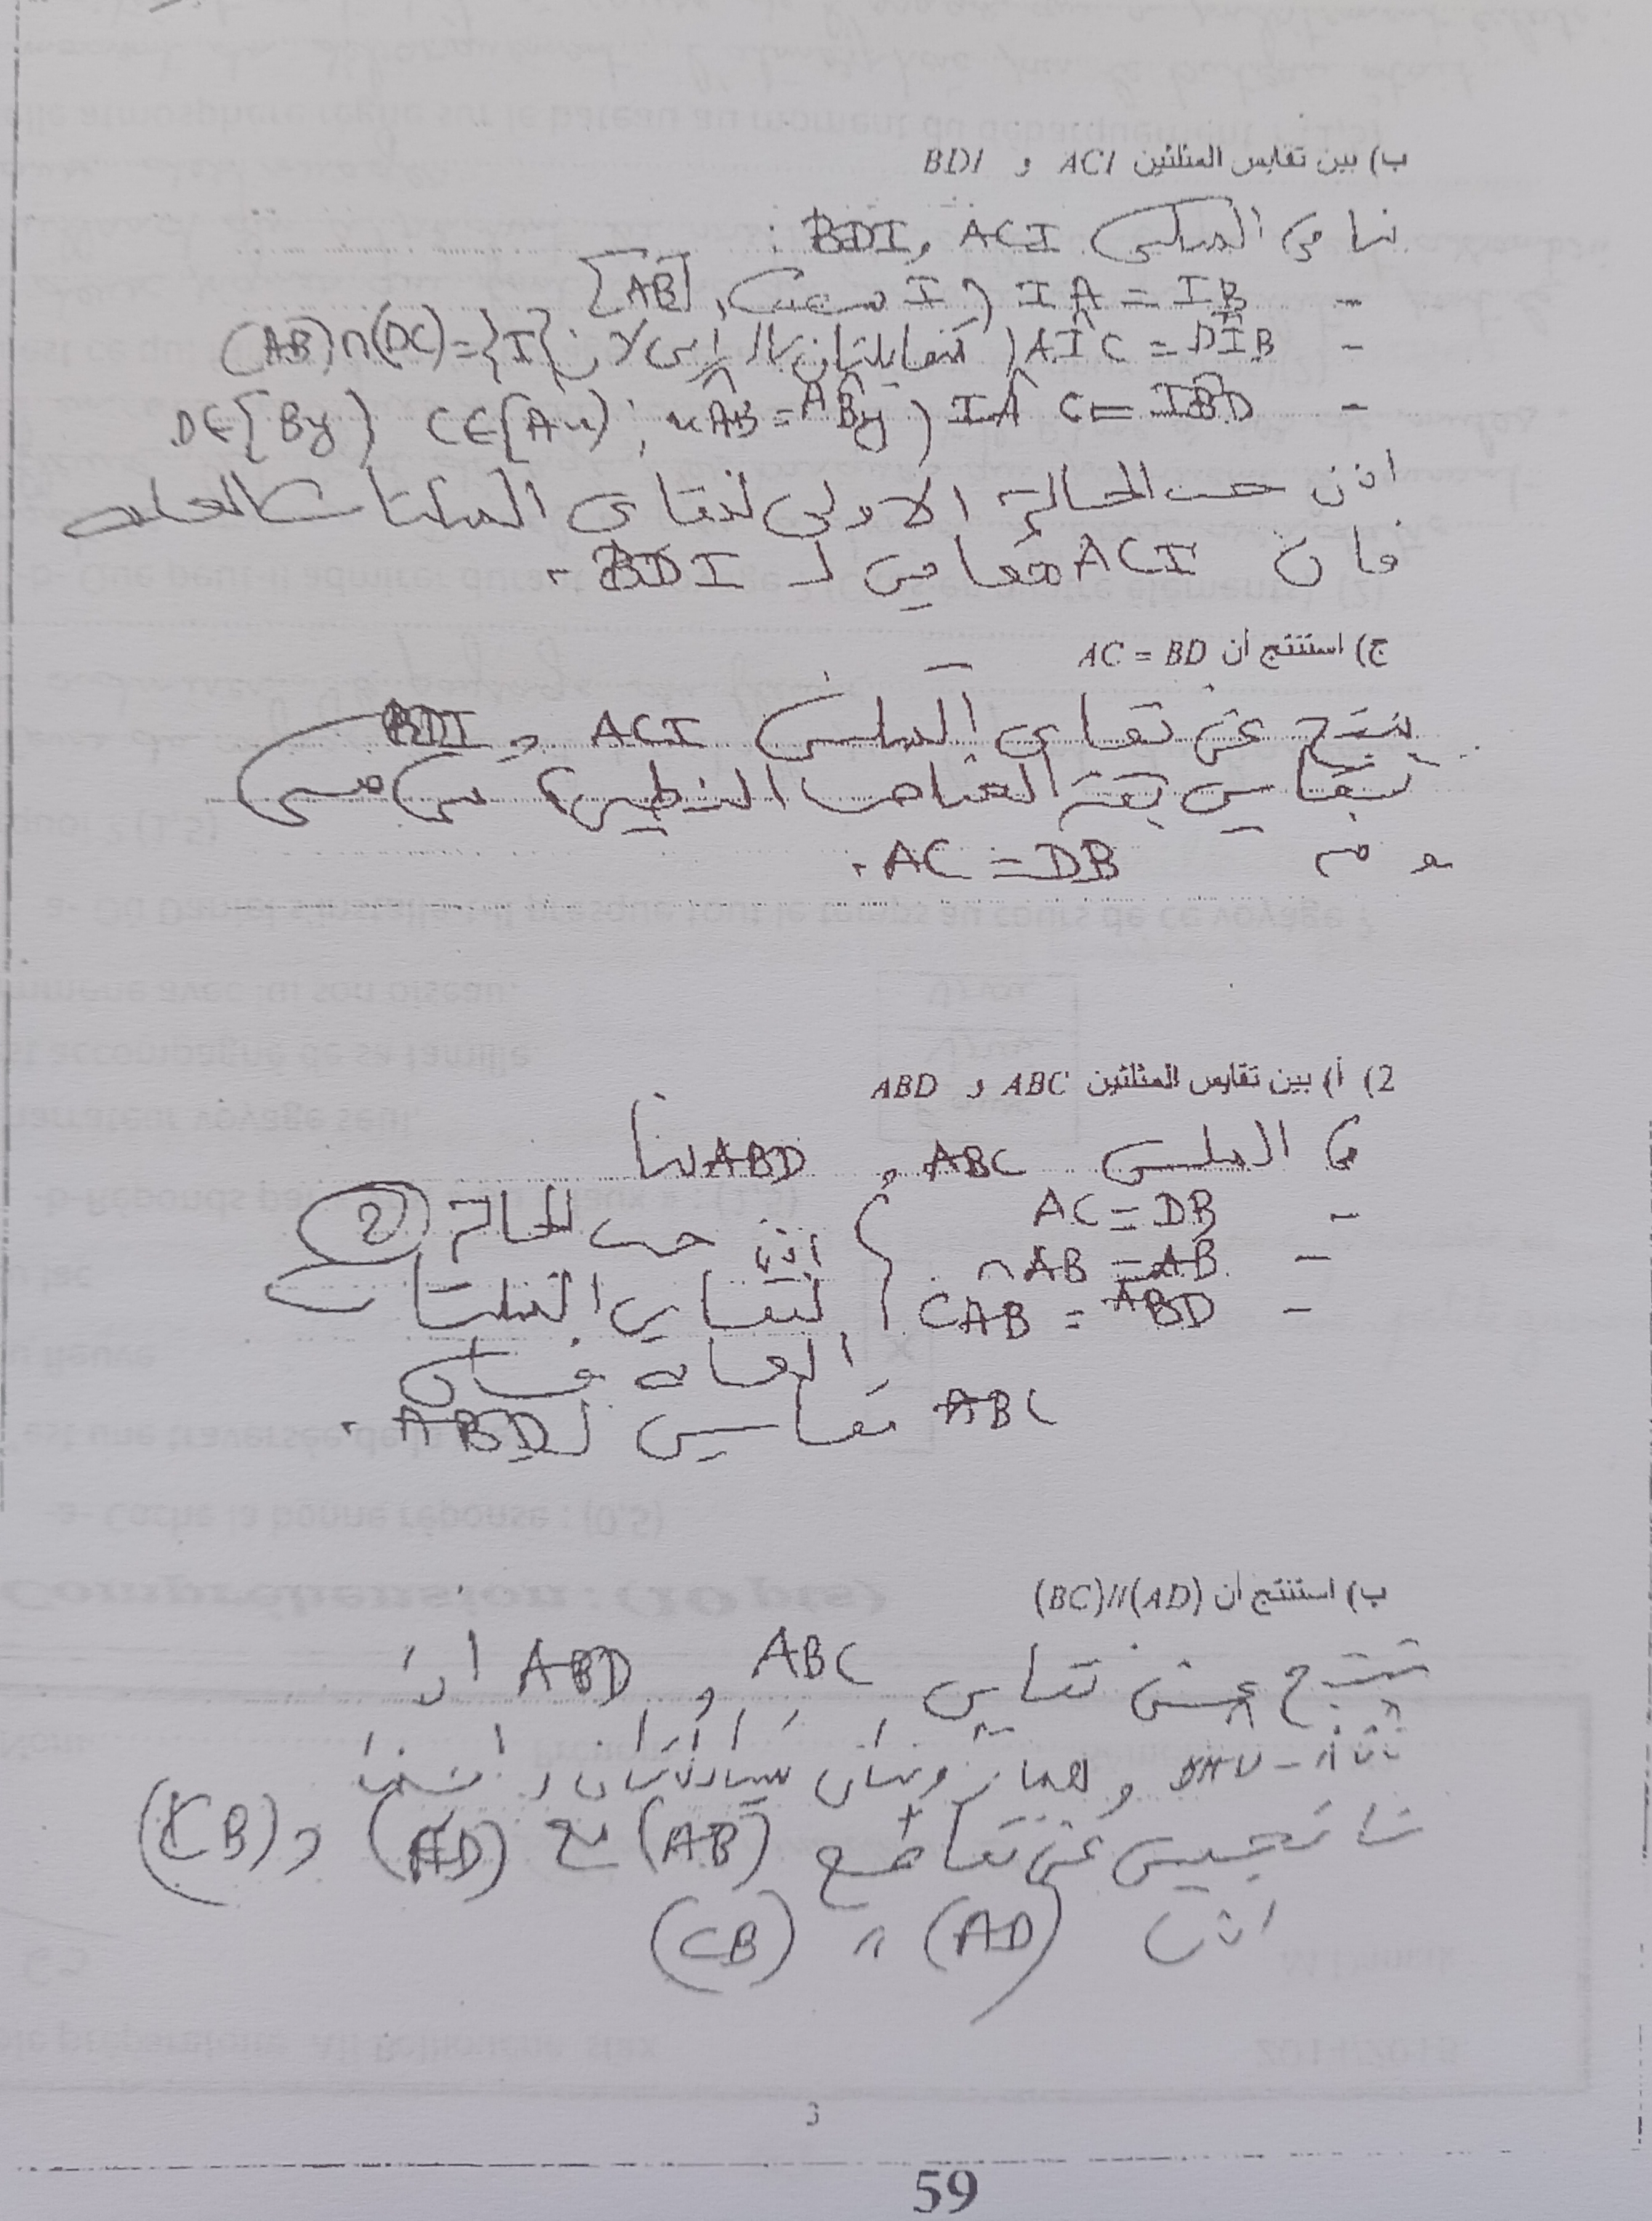 ب) بين تقايس المثلثين ACI و BDI
لنا في المثلثين ACI و BDI :
- IA = IB ( I منتصف [AB]
- AÎC = DÎB ( متقابلتان بالرأس لأن (AB)∩(DC)={I}
- IÂC = IB̂D ( xÂB = AB̂y ; C∈[Ax) D∈[By)
اذن حسب الحالة الاولى لتقايس المثلثات العامة
فان ACI مقايس لـ BDI .
ج) استنتج أن AC = BD
ينتج عن تقايس المثلثين ACI و BDI
تقايس بقية العناصر النظيرة مثنى مثنى
و منه AC = DB .
2) أ) بين تقايس المثلثين ABC و ABD
في المثلثين ABC و ABD لنا
- AC = DB
- AB = AB
- CAB = ABD
اذن حسب الحالة 2
لتقايس المثلثات
العامة فان
ABC مقايس لـ ABD .
ب) استنتج أن (BC)//(AD)
ينتج عن تقايس ABC و ABD أن
و هما زاويتان متبادلتان داخليا
ناتجتين عن تقاطع (AB) مع (AD) و (CB)
اذن (AD) // (CB)
3
59